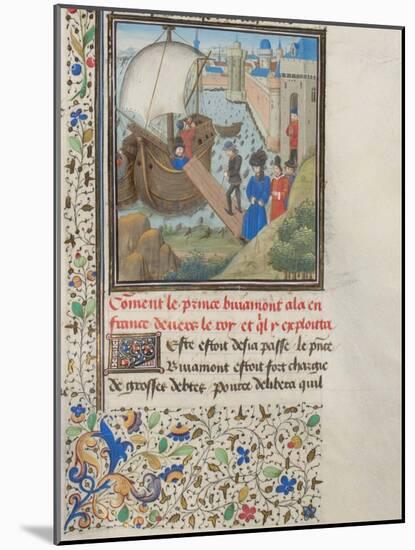 Coment le prince buiamont ala en
france deuers le roy et ql y exploitta
Este estoit desia passe le pnce
Buiamont estoit fort chargie
de grosses debtes Pource delibera quil